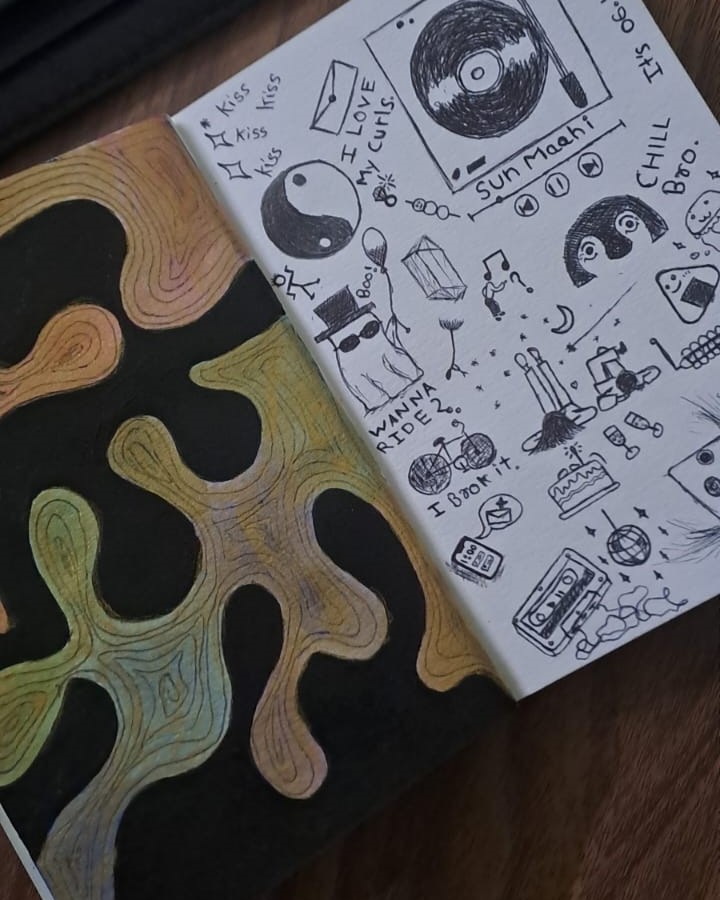 Kiss
Kiss
Kiss
Kiss
I LOVE
My curls.
Sun Maahi
It's
CHILL
Bro.
Boo!
WANNA
RIDE?
I Book it.
1:00